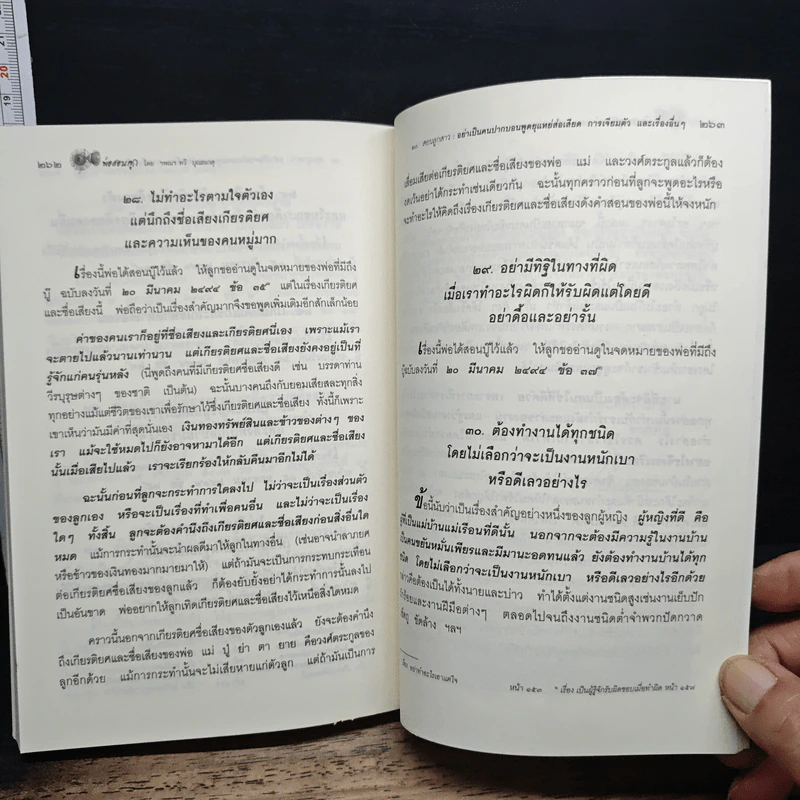 ๒๖๒ พ่อสอนลูก โดย
๒๘. ไม่ทำอะไรตามใจตัวเอง
แต่นึกถึงชื่อเสียงเกียรติยศ
และความเห็นของคนหมู่มาก
เรื่องนี้พ่อได้สอนบู๊ไว้แล้ว ให้ลูกขออ่านดูในจดหมายของพ่อที่มีถึง
บู๊ ฉบับลงวันที่ ๒๐ มีนาคม ๒๔๙๔ ข้อ ๓๕* แต่ในเรื่องเกียรติยศ
และชื่อเสียงนี้ พ่อถือว่าเป็นเรื่องสำคัญมากจึงขอพูดเพิ่มเติมอีกสักเล็กน้อย
ค่าของคนเราก็อยู่ที่ชื่อเสียงและเกียรติยศนี่เอง เพราะแม้เรา
จะตายไปแล้วนานเท่านาน แต่เกียรติยศและชื่อเสียงยังคงอยู่เป็นที่
รู้จักแก่คนรุ่นหลัง (นี่พูดถึงคนที่มีเกียรติยศชื่อเสียงดี เช่น บรรดาท่าน
วีรบุรุษต่างๆ ของชาติ เป็นต้น) ฉะนั้นบางคนถึงกับยอมเสียสละทุกสิ่ง
ทุกอย่างแม้แต่ชีวิตของเขาเพื่อรักษาไว้ซึ่งเกียรติยศและชื่อเสียง ทั้งนี้ก็เพราะ
เขาเห็นว่ามันมีค่าที่สุดนั่นเอง เงินทองทรัพย์สินและข้าวของต่างๆ ของ
เรา แม้จะใช้หมดไปก็ยังอาจหามาได้อีก แต่เกียรติยศและชื่อเสียง
นั้นเมื่อเสียไปแล้ว เราจะเรียกร้องให้กลับคืนมาอีกไม่ได้
ฉะนั้นก่อนที่ลูกจะกระทำการใดลงไป ไม่ว่าจะเป็นเรื่องส่วนตัว
ของลูกเอง หรือจะเป็นเรื่องที่ทำเพื่อคนอื่น และไม่ว่าจะเป็นเรื่อง
ใดๆ ทั้งสิ้น ลูกจะต้องคำนึงถึงเกียรติยศและชื่อเสียงก่อนสิ่งอื่นใด
หมด แม้การกระทำนั้นจะนำผลดีมาให้ลูกในทางอื่น (เช่นอาจนำลาภยศ
หรือข้าวของเงินทองมากมายมาให้) แต่ถ้ามันจะเป็นการกระทบกระเทือน
ต่อเกียรติยศชื่อเสียงของลูกแล้ว ก็ต้องยับยั้งอย่าได้กระทำการนั้นลงไป
เป็นอันขาด พ่ออยากให้ลูกเทิดเกียรติยศและชื่อเสียงไว้เหนือสิ่งใดหมด
คราวนี้นอกจากเกียรติยศชื่อเสียงของตัวลูกเองแล้ว ยังจะต้องคำนึง
ถึงเกียรติยศและชื่อเสียงของพ่อ แม่ ปู่ ย่า ตา ยาย คือวงศ์ตระกูลของ
ลูกอีกด้วย แม้การกระทำนั้นจะไม่เสียหายแก่ตัวลูก แต่ถ้ามันเป็นการ
๑๐. สอนลูกสาว : อย่าเป็นคนปากบอนพูดยุแหย่ส่อเสียด การเจียมตัว และเรื่องอื่นๆ ๒๖๓
เสื่อมเสียต่อเกียรติยศและชื่อเสียงของพ่อ แม่ และวงศ์ตระกูลแล้วก็ต้อง
งดเว้นอย่าได้กระทำเช่นเดียวกัน ฉะนั้นทุกคราวก่อนที่ลูกจะพูดอะไรหรือ
จะทำอะไรให้คิดถึงเรื่องเกียรติยศและชื่อเสียงดังคำสอนของพ่อนี้ให้จงหนัก
๒๙. อย่ามีทิฐิในทางที่ผิด
เมื่อเราทำอะไรผิดก็ให้รับผิดแต่โดยดี
อย่าดื้อและอย่ารั้น
เรื่องนี้พ่อได้สอนบู๊ไว้แล้ว ให้ลูกขออ่านดูในจดหมายของพ่อที่มีถึง
บู๊ฉบับลงวันที่ ๒๐ มีนาคม ๒๔๙๔ ข้อ ๓๗*
๓๐. ต้องทำงานได้ทุกชนิด
โดยไม่เลือกว่าจะเป็นงานหนักเบา
หรือดีเลวอย่างไร
ข้อนี้นับว่าเป็นเรื่องสำคัญอย่างหนึ่งของลูกผู้หญิง ผู้หญิงที่ดี คือ
ผู้ที่เป็นแม่บ้านแม่เรือนที่ดีนั้น นอกจากจะต้องมีความรู้ในงานบ้าน
เป็นคนขยันหมั่นเพียรและมีมานะอดทนแล้ว ยังต้องทำงานบ้านได้ทุก
ชนิด โดยไม่เลือกว่าจะเป็นงานหนักเบา หรือดีเลวอย่างไรอีกด้วย
กล่าวคือต้องเป็นได้ทั้งนายและบ่าว ทำได้ตั้งแต่งานชนิดสูงเช่นงานเย็บปัก
ถักร้อยและงานฝีมือต่างๆ ตลอดไปจนถึงงานชนิดต่ำจำพวกปัดกวาด
เช็ดถู ขัดล้าง ฯลฯ
เรื่อง อย่าทำอะไรเอาแต่ใจ
หน้า ๑๕๓ * เรื่อง เป็นผู้รู้จักรับผิดชอบเมื่อทำผิด หน้า ๑๕๘
21
20
19